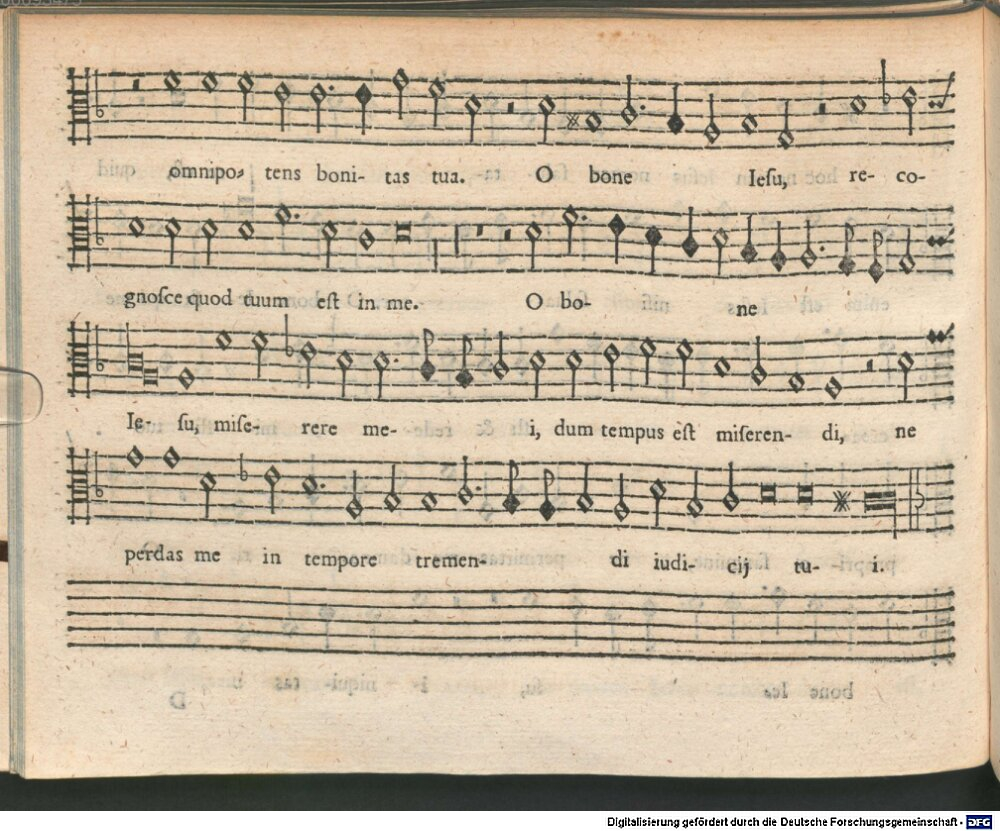 omnipo- tens boni- tas tua. O bone Iesu, re- co-
gnosce quod tuum est in me. O bo- ne
Ie- su, mise- rere me- i, dum tempus est miseren- di, ne
perdas me in tempore tremen- di iudi- cij tu- i.
Digitalisierung gefördert durch die Deutsche Forschungsgemeinschaft - DFG